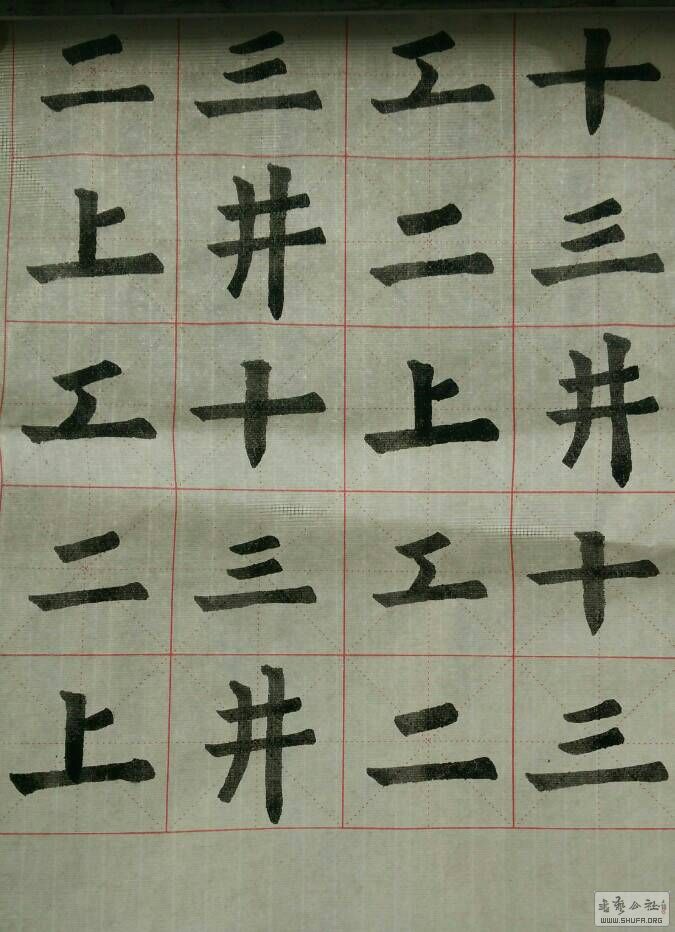 二三工十
上井二三
工十上井
二三工十
上井二三
书艺公社
WWW.SHUFA.ORG